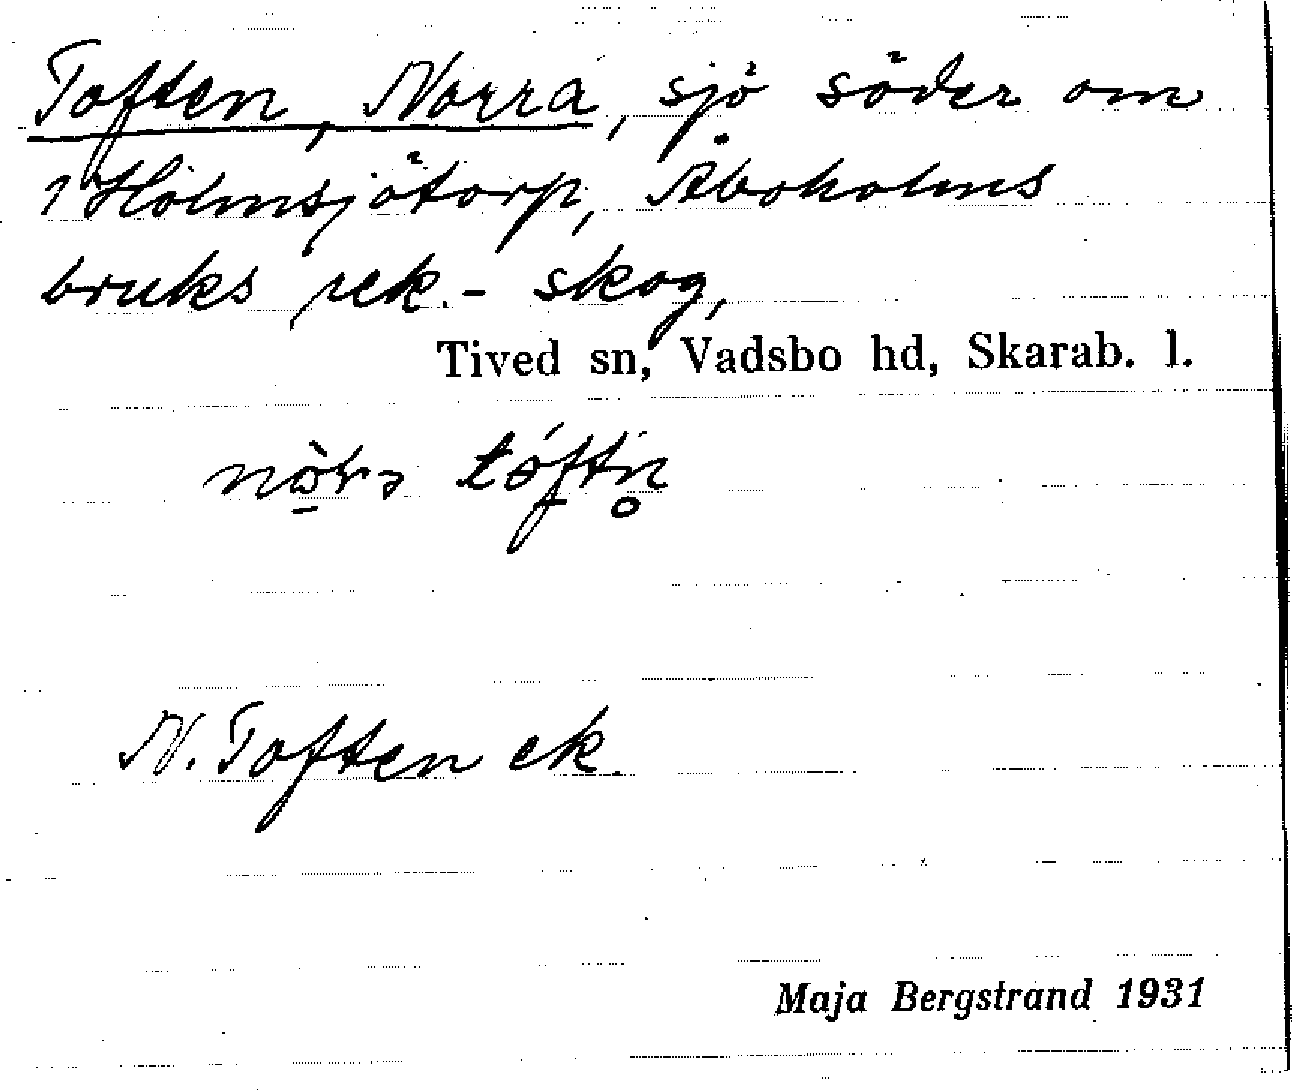 Toften, Norra, sjö söder om
1 Holmsjötorp, Åboholms
bruks rek.- skog,
Tived sn, Vadsbo hd, Skarab. l.
N. Toften ek.
Maja Bergstrand 1931